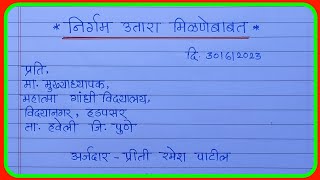 * निर्गम उतारा मिळणेबाबत *
दि. 30/6/2023
प्रति,
मा. मुख्याध्यापक,
महात्मा गांधी विद्यालय,
विद्यानगर, हडपसर
ता. हवेली जि. पुणे
अर्जदार - प्रीती रमेश पाटील